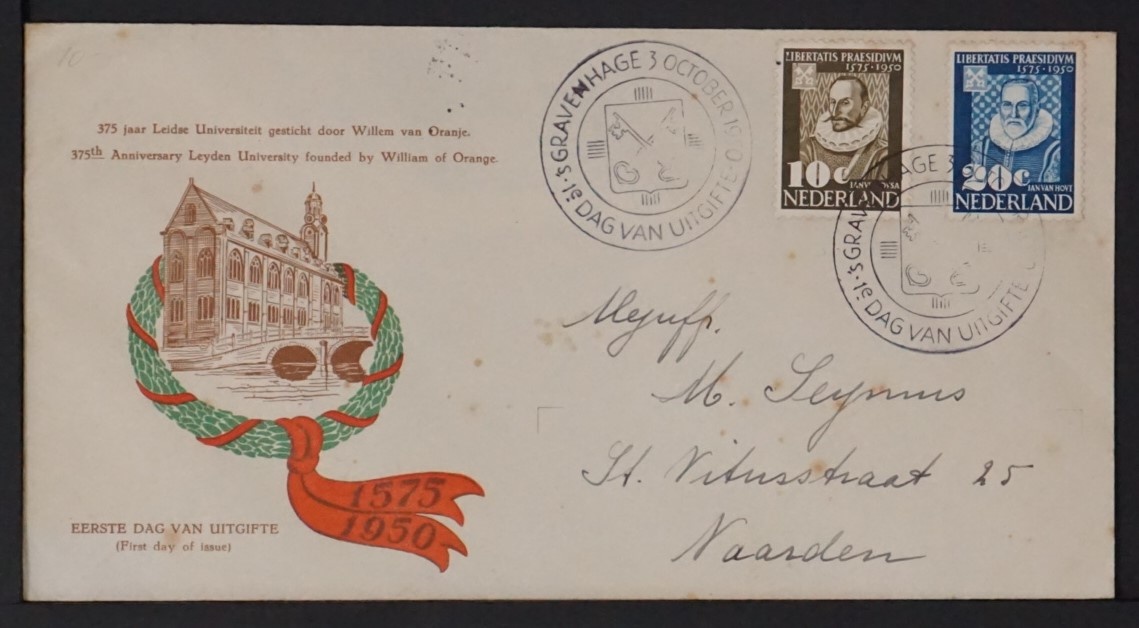 10
375 jaar Leidse Universiteit gesticht door Willem van Oranje.
375th Anniversary Leyden University founded by William of Orange.
'sGRAVENHAGE 3 OCTOBER 1950
1e DAG VAN UITGIFTE
LIBERTATIS PRAESIDIVM
1575·1950
10c
NEDERLAND
LIBERTATIS PRAESIDIVM
1575·1950
20c
JAN VAN HOVT
NEDERLAND
'sGRAV AGE 3
1e DAG VAN UITGIFTE
Mejuffr.
M. Seynus
St. Vitusstraat 25
Naarden
1575
1950
EERSTE DAG VAN UITGIFTE
(First day of issue)